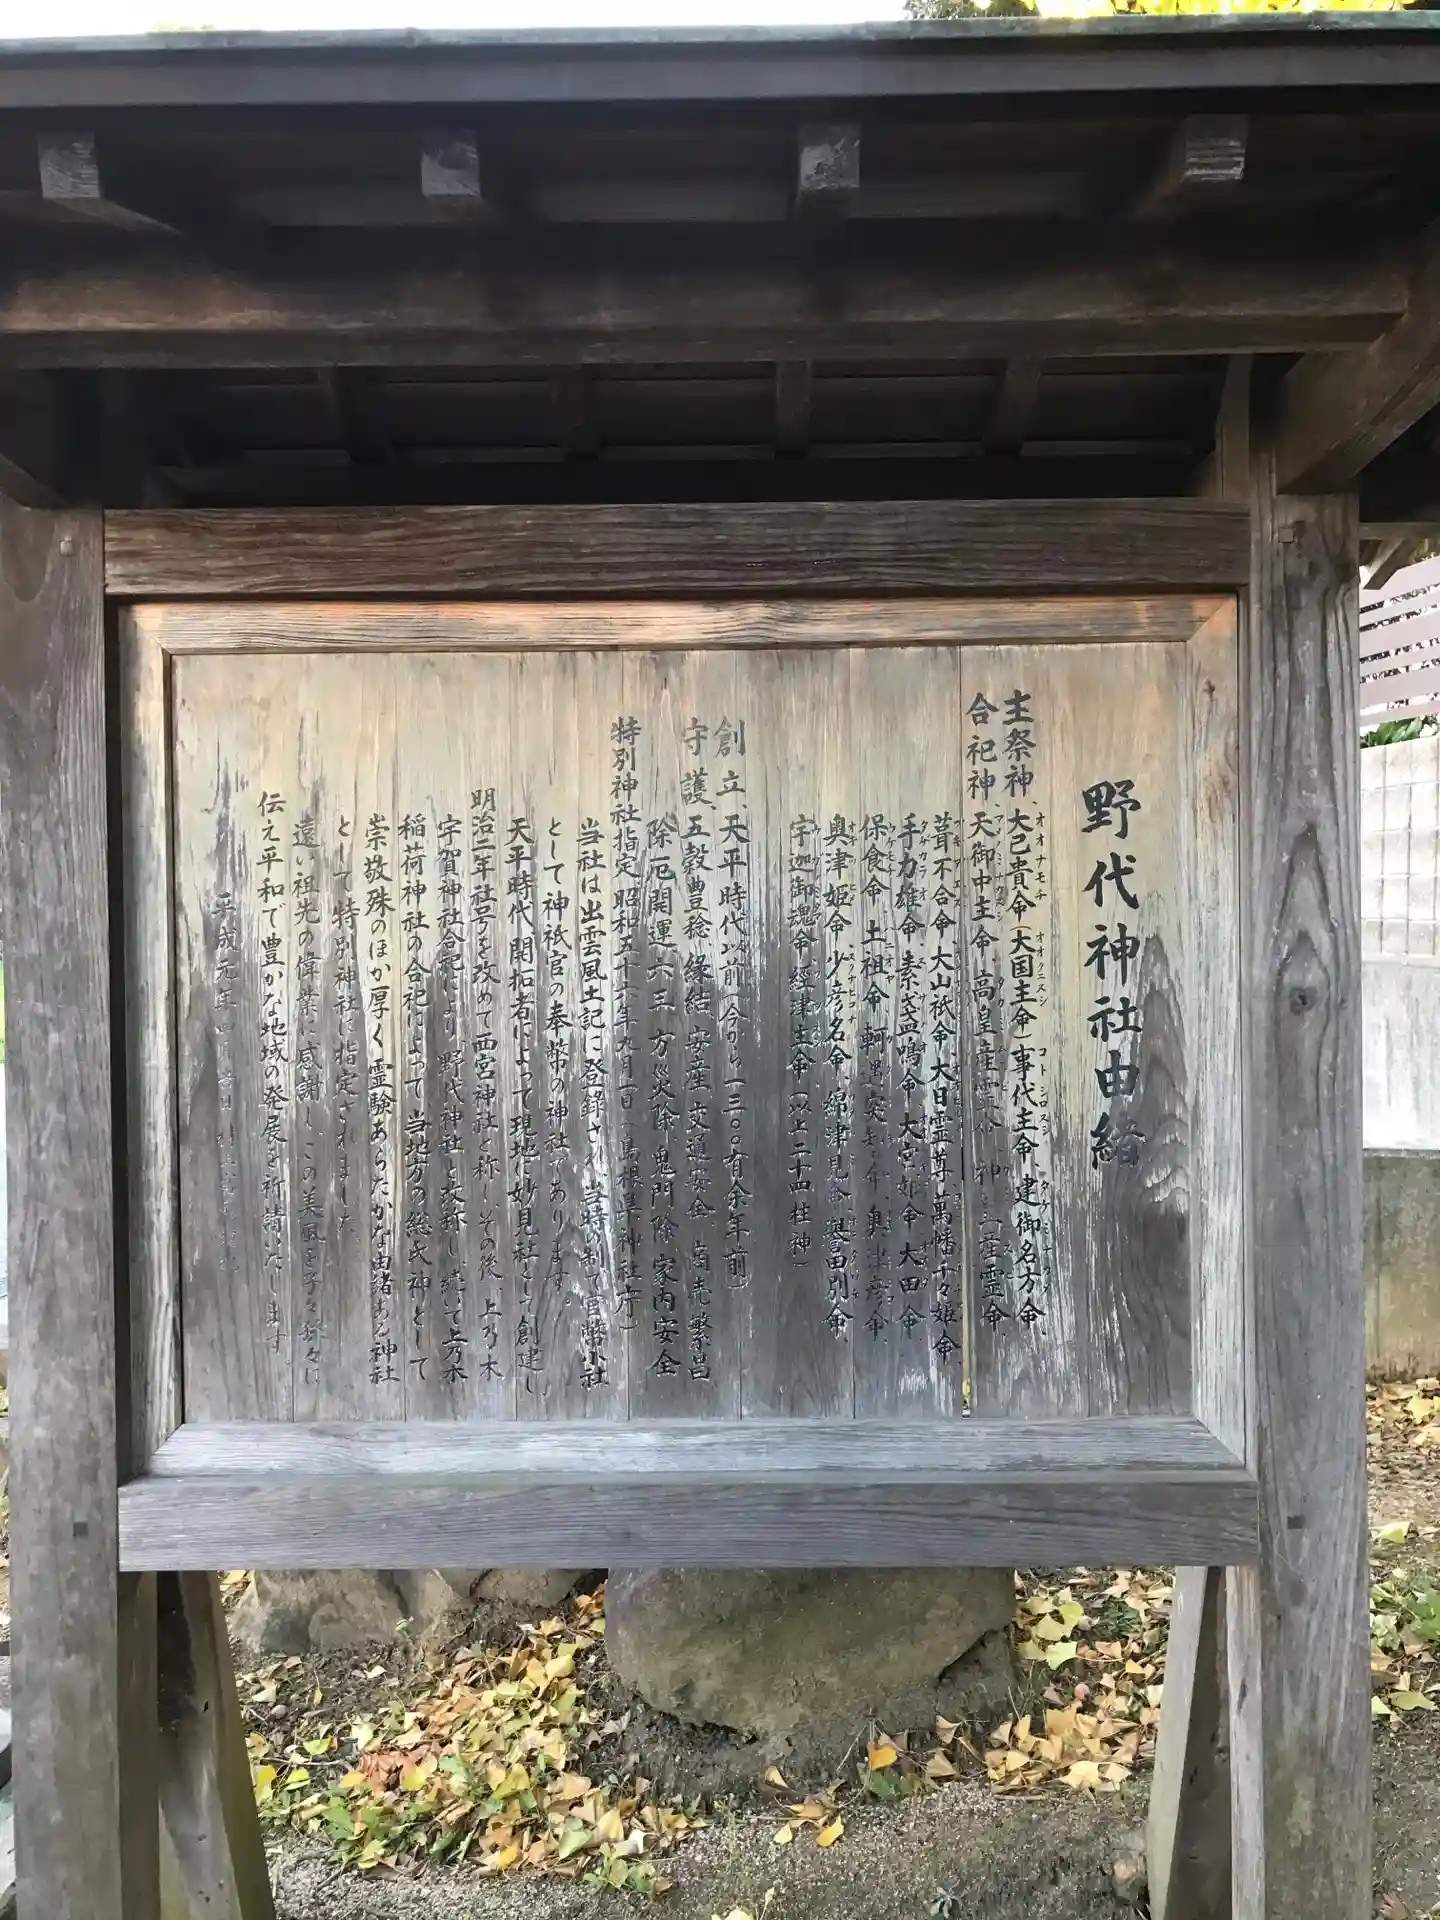 野代神社由緒
主祭神、大己貴命(大国主命)事代主命、建御名方命、
オオナモチ オオクニヌシ コトシロヌシ タケミナカタ
合祀神、天御中主命、高皇産霊命、神皇産霊命、
葺不合命、大山祇命、大日霊尊、萬幡千々姫命、
手力雄命、素盞鳴命、大宮姫命、大田命、
保食命、土祖命、軻遇突知命、奥津彦命、
奥津姫命、少彦名命、綿津見命、誉田別命、
宇迦御魂命、経津主命(以上二十四柱神)
創立、天平時代以前(今から一三〇〇有余年前)
守護、五穀豊稔、縁結、安産、交通安全、商売繁昌
除厄開運、六三、方災除、鬼門除、家内安全
特別神社指定、昭和五十六年九月一日(島根県神社庁)
当社は出雲風土記に登録され、当時の制で官幣小社
として神祇官の奉幣の神社であります。
天平時代、開拓者によって現地に妙見社として創建し、
明治二年社号を改めて西宮神社と称し、その後、上乃木
宇賀神社合祀により、野代神社と改称し、続いて上乃木
稲荷神社の合祀によって当地方の総氏神として
崇敬殊のほか厚く霊験あらたかな由緒ある神社
として特別神社に指定されました。
遠い祖先の偉業に感謝し、この美風を子々孫々に
伝え平和で豊かな地域の発展を祈請いたします。
平成元年四月吉日